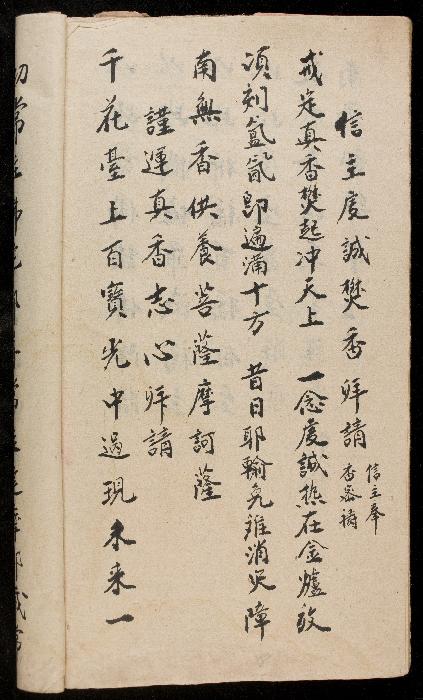 信主虔誠焚香拜請
信主奉
香密禱
戒定真香焚起冲天上 一念虔誠熱在金爐放
頃刻氤氳即遍滿十方 昔日耶輸免难消災障
南無香供養菩薩摩訶薩
謹運真香志心拜請
千花臺上百寶光中過現未來一